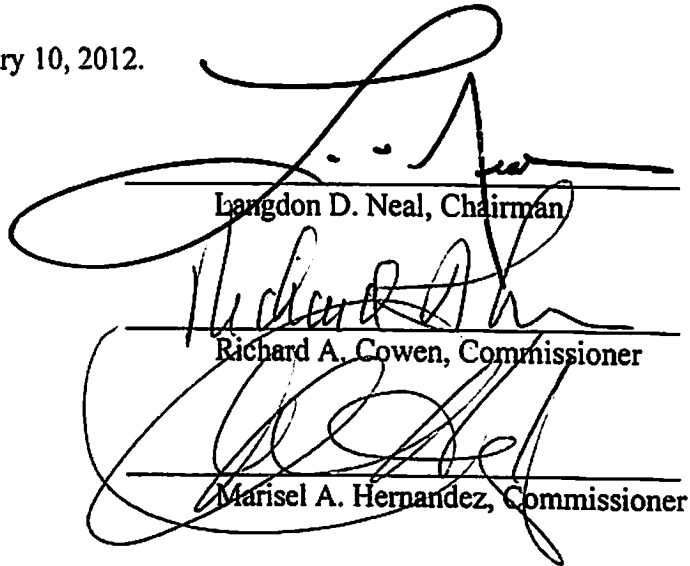 ry 10, 2012.
Langdon D. Neal, Chairman
Richard A. Cowen, Commissioner
Marisel A. Hernandez, Commissioner